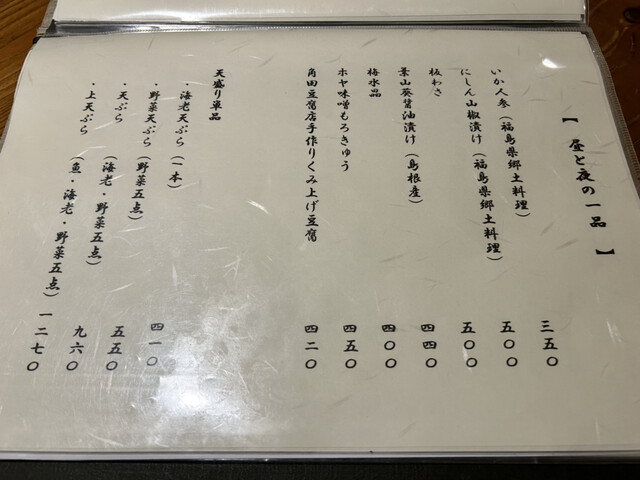 【 昼と夜の一品 】
いか人参（福島県郷土料理） 三五〇
にしん山椒漬け（福島県郷土料理） 五〇〇
板わさ 五〇〇
葉山葵醤油漬け（島根産） 四四〇
梅水晶 四〇〇
ホヤ味噌もろきゅう 四五〇
角田豆腐店手作りくみ上げ豆腐 四二〇
天盛り単品
・海老天ぷら（一本） 四一〇
・野菜天ぷら（野菜五点） 五五〇
・天ぷら（海老・野菜五点） 九六〇
・上天ぷら（魚・海老・野菜五点） 一二七〇